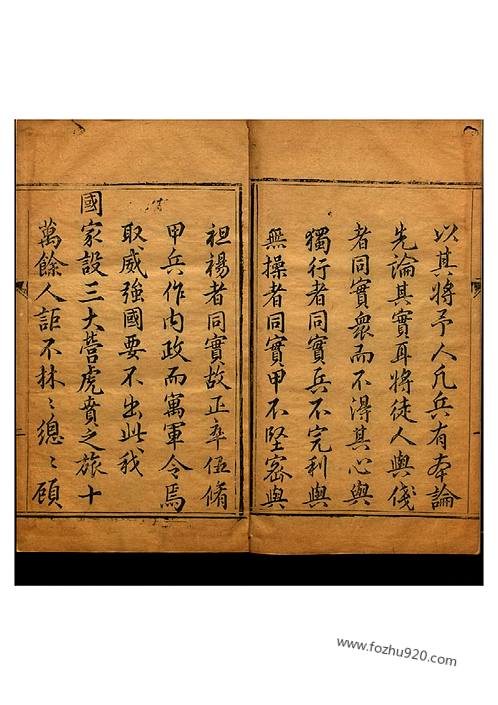 以其將予人凡兵有夲論
先論其實耳將徒人與俴
者同實衆而不得其心與
獨行者同實兵不完利與
無操者同實甲不堅密與
袒裼者同實故正卒伍脩
甲兵作内政而寓軍令焉
取威強國要不出此我
國家設三大營虎賁之旅十
萬餘人詎不林〻總〻顧
www.fozhu920.com